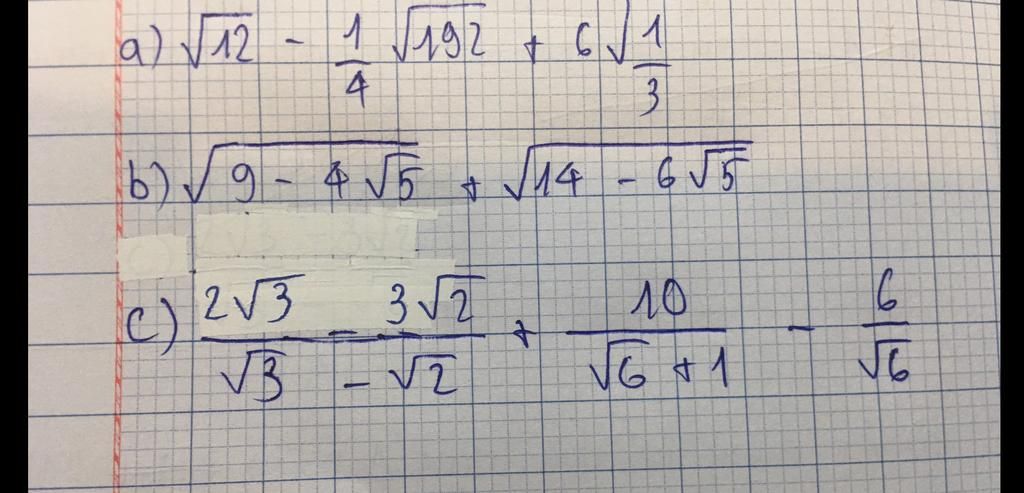 a) √12 - 1/4 √192 + 6√(1/3)
b) √(9 - 4√5) + √(14 - 6√5)
c) (2√3 - 3√2)/(√3 - √2) + 10/(√6 + 1) - 6/√6